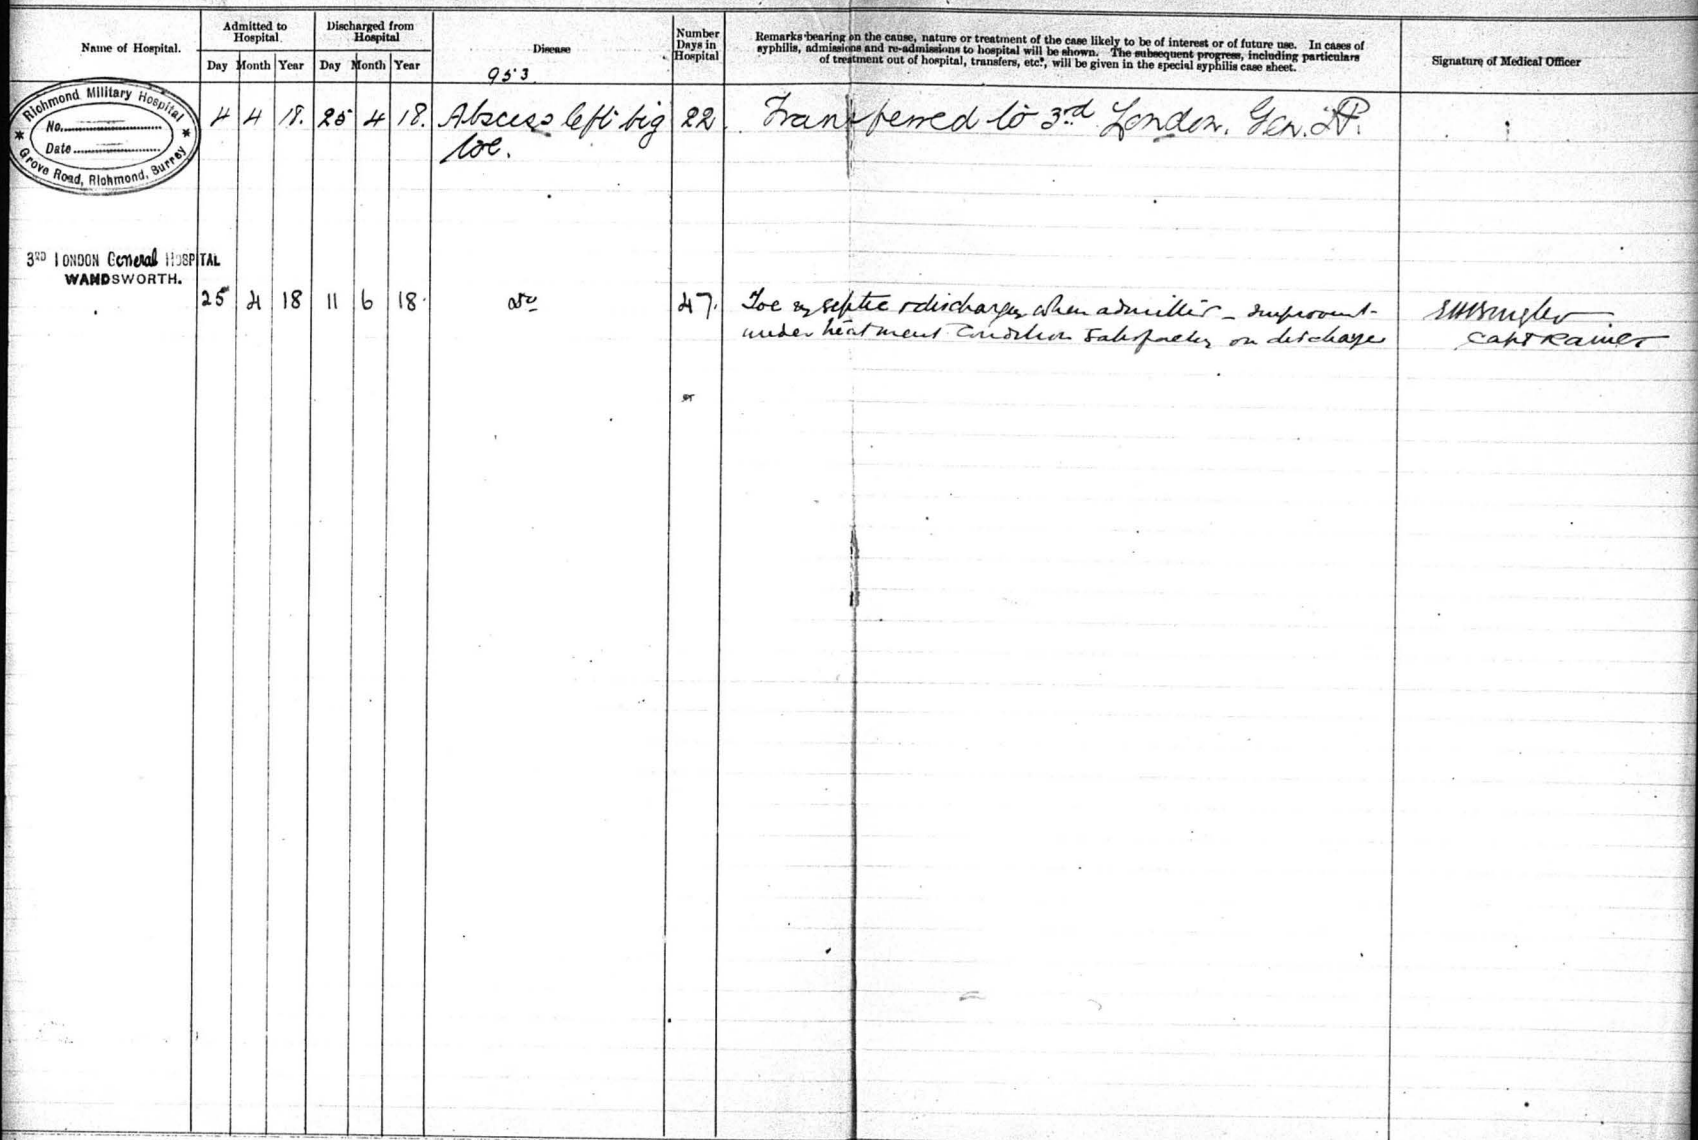 Name of Hospital.
Admitted to
Hospital.
Discharged from
Hospital
Day Month Year Day Month Year
Disease
953
Number
Days in
Hospital
Remarks bearing on the cause, nature or treatment of the case likely to be of interest or of future use. In cases of
syphilis, admissions and re-admissions to hospital will be shown. The subsequent progress, including particulars
of treatment out of hospital, transfers, etc., will be given in the special syphilis case sheet.
Signature of Medical Officer
Richmond Military Hospital
No.
Date
Grove Road, Richmond, Surrey
4 4 18. 25 4 18. Abscess left big 22. Transferred to 3rd London. Gen. H.
toe.
3RD LONDON General HOSPITAL
WANDSWORTH.
25 4 18 11 6 18. do 47. Toe septic & discharging when admitted - improvent
under treatment Condition Satisfactory on discharge
Capt RAMCT